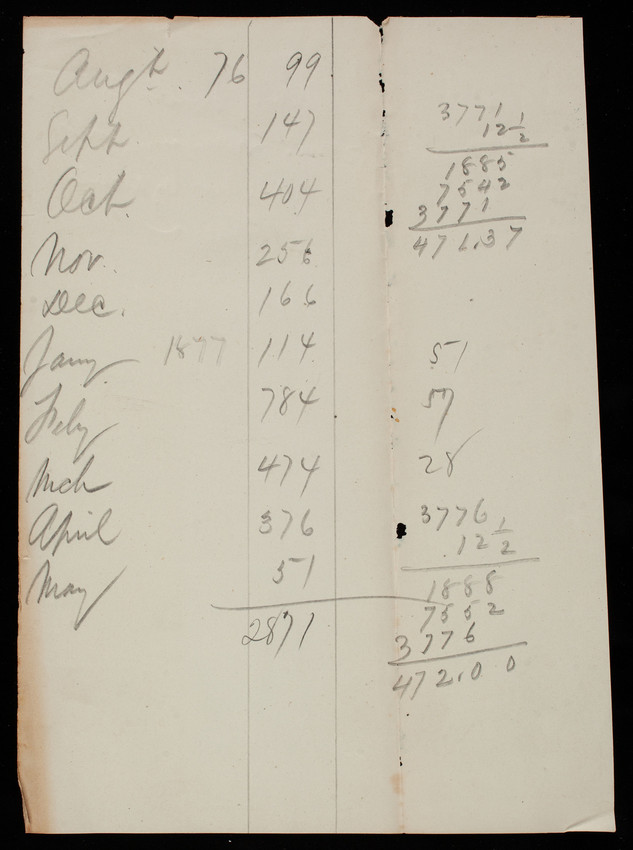 Augt. 76 99
Sept 147
Oct. 404
Nov. 256
Dec. 166
Jany 1877 114
Feby 784
Mch 474
April 376
May 51
2871
3771
12 1/2
1885
7542
3771
471.37
51
57
28
3776
12 1/2
1888
7552
3776
472.00